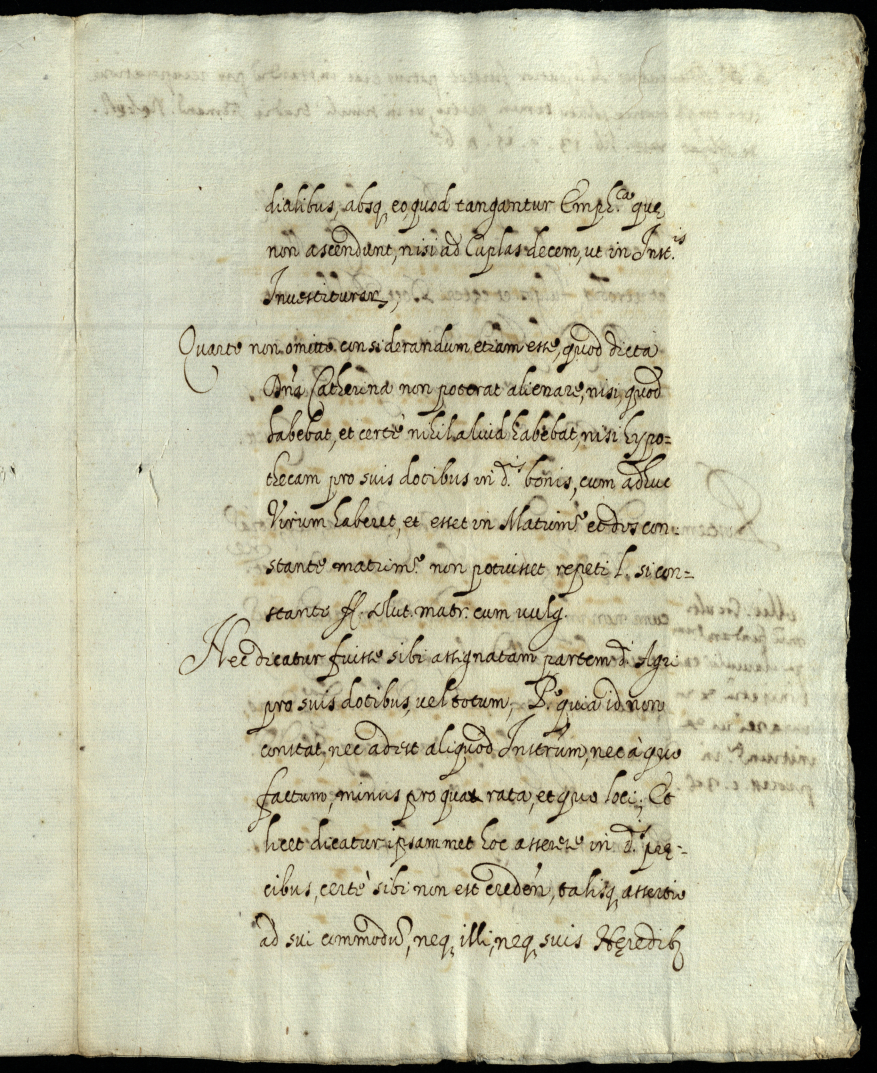 dialibus, absq, eo, quod tangantur Emph.ca quę
non ascendunt, nisi ad Cuplas decem, ut in Inst.is
Investiturar,
Quarto non omitto considerandum etiam esse, quod dicta
Dña Catherina non poterat alienare, nisi quod
habebat, et certè nihil aliud habebat, nisi hypo=
thecam pro suis dotibus in d.is bonis, cum adhuc
Virum haberet, et esset in Matrim.o et dos con=
stante matrim.o non potuisset repeti l. si con=
stante ff. solut. matr. cum vulg.
Nec dicatur fuisse sibi assignatam partem d.i Agri
pro suis dotibus, vel totum, quia id non
constat, nec adest aliquod Instrũm, nec à quo
factum, minus pro qua rata, et quo loci; Et
licet dicatur ipsammet hoc asserere in d.is prę=
cibus, certè sibi non est credeñ, talisq, assertio
ad sui commodũ, neq, illi, neq, suis Hęredib